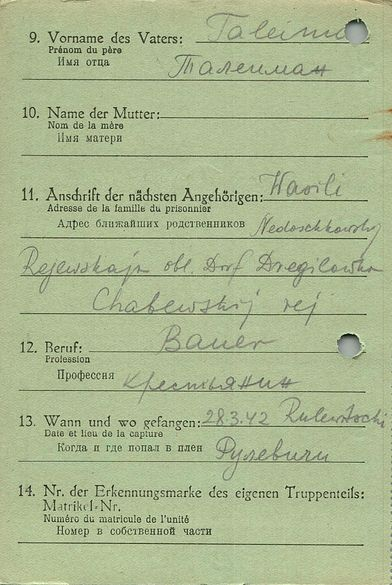 9. Vorname des Vaters:
Prénom du père
Имя отца Талейман
10. Name der Mutter:
Nom de la mère
Имя матери
11. Anschrift der nächsten Angehörigen: Wasili
Adresse de la famille du prisonnier
Адрес ближайших родственников Nedoschkowskij
obl. Dorf Dregilowka
Chabewskij rej
12. Beruf: Bauer
Profession
Профессия Крестьянин
13. Wann und wo gefangen: 28.3.42
Date et lieu de la capture
Когда и где попал в плен Рулевичи
14. Nr. der Erkennungsmarke des eigenen Truppenteils:
Matrikel-Nr.
Numéro du matricule de l'unité
Номер в собственной части